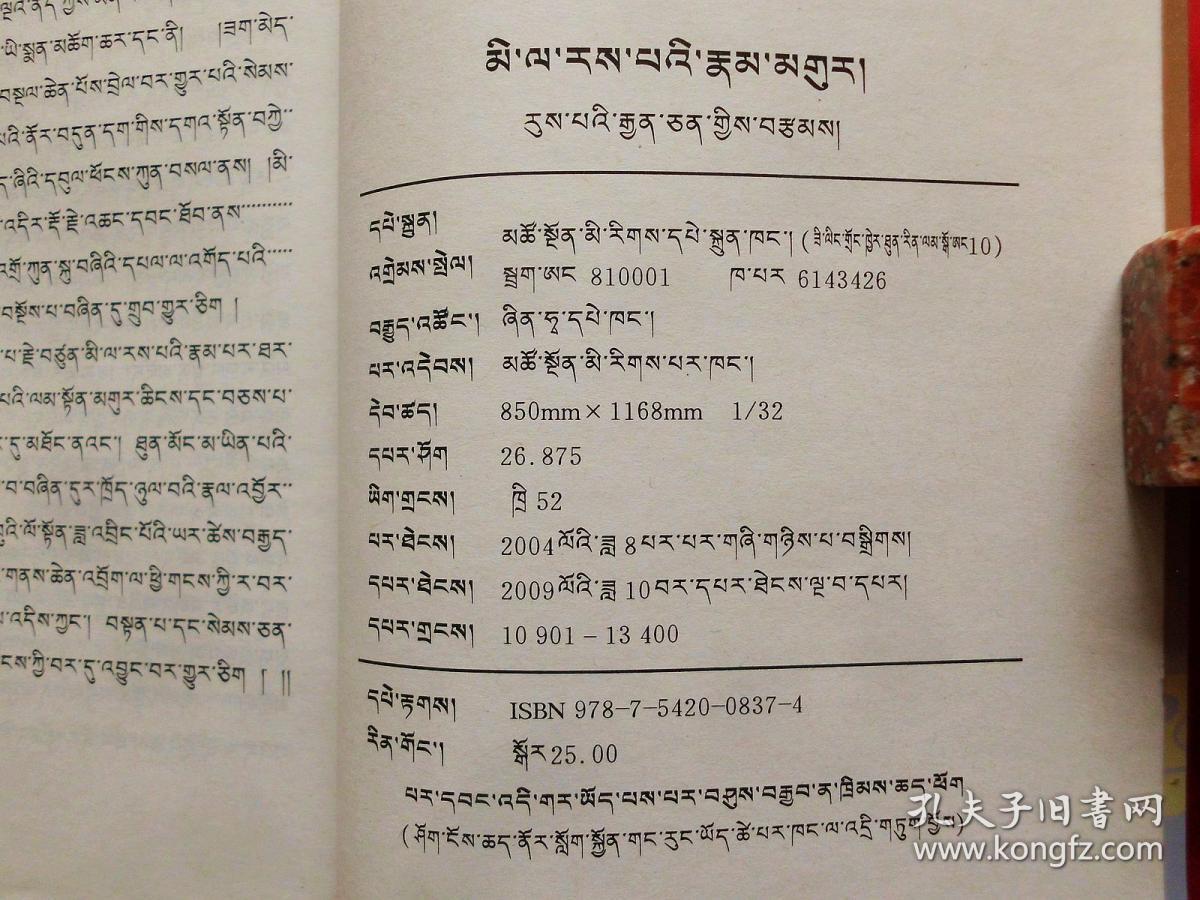 ཡི་སྨན་མཆོག་ཆར་དང་ནི། །ཟག་མེད་
བསྔལ་ཆེན་པོས་བྲེལ་བར་གྱུར་པའི་སེམས་
པའི་ནོར་བདུན་དག་གིས་དགའ་སྟོན་བཀྱེ་
ད་ཞིའི་དབུལ་ཕོངས་ཀུན་བསལ་ནས། །མི་
འདིར་རྡོ་རྗེ་འཆང་དབང་ཐོབ་ནས
འགྲོ་ཀུན་སྐུ་བཞིའི་དཔལ་ལ་འགོད་པའི
བསྔོས་པ་བཞིན་དུ་གྲུབ་གྱུར་ཅིག །
པ་རྗེ་བཙུན་མི་ལ་རས་པའི་རྣམ་པར་ཐར་
པའི་ལམ་སྟོན་མགུར་ཆིངས་དང་བཅས་པ་
དུ་མཐོང་ནའང་། ཐུན་མོང་མ་ཡིན་པའི་
བ་བཞིན་དུར་ཁྲོད་ཉུལ་བའི་རྣལ་འབྱོར་
འི་ལོ་སྟོན་ཟླ་འབྲིང་པོའི་ཡར་ཚེས་བརྒྱད་
གནས་ཆེན་འབྲོག་ལ་ཕྱི་གངས་ཀྱི་ར་བར་
འདིས་ཀྱང་། བསྟན་པ་དང་སེམས་ཅན་
ངས་ཀྱི་བར་དུ་འབྱུང་བར་གྱུར་ཅིག ། །།
མི་ལ་རས་པའི་རྣམ་མགུར།
རུས་པའི་རྒྱན་ཅན་གྱིས་བརྩམས།
དཔེ་སྐྲུན། མཚོ་སྔོན་མི་རིགས་དཔེ་སྐྲུན་ཁང་། (ཟི་ལིང་གྲོང་ཁྱེར་ཐུན་རིན་ལམ་སྒོ་ཨང10)
འགྲེམས་སྤེལ། སྦྲག་ཨང 810001 ཁ་པར 6143426
བརྒྱུད་འཚོང་། ཞིན་ཧྭ་དཔེ་ཁང་།
པར་འདེབས། མཚོ་སྔོན་མི་རིགས་པར་ཁང་།
དེབ་ཚད། 850mm×1168mm 1/32
དཔར་ཤོག 26.875
ཡིག་གྲངས། ཁྲི 52
པར་ཐེངས། 2004ལོའི་ཟླ 8པར་པར་གཞི་གཉིས་པ་བསྒྲིགས།
དཔར་ཐེངས། 2009ལོའི་ཟླ 10བར་དཔར་ཐེངས་ལྔ་བ་དཔར།
དཔར་གྲངས། 10 901－13 400
དཔེ་རྟགས། ISBN 978-7-5420-0837-4
རིན་གོང་། སྒོར25.00
པར་དབང་འདི་གར་ཡོད་པས་པར་བཤུས་བརྒྱབ་ན་ཁྲིམས་ཆད་ཕོག
(ཤོག་ངོས་ཆད་ནོར་སློག་སྐྱོན་གང་རུང་ཡོད་ཚེ་པར་ཁང་ལ་འདྲི་གཏུག་བྱོས)
孔夫子旧書网
www.kongfz.com